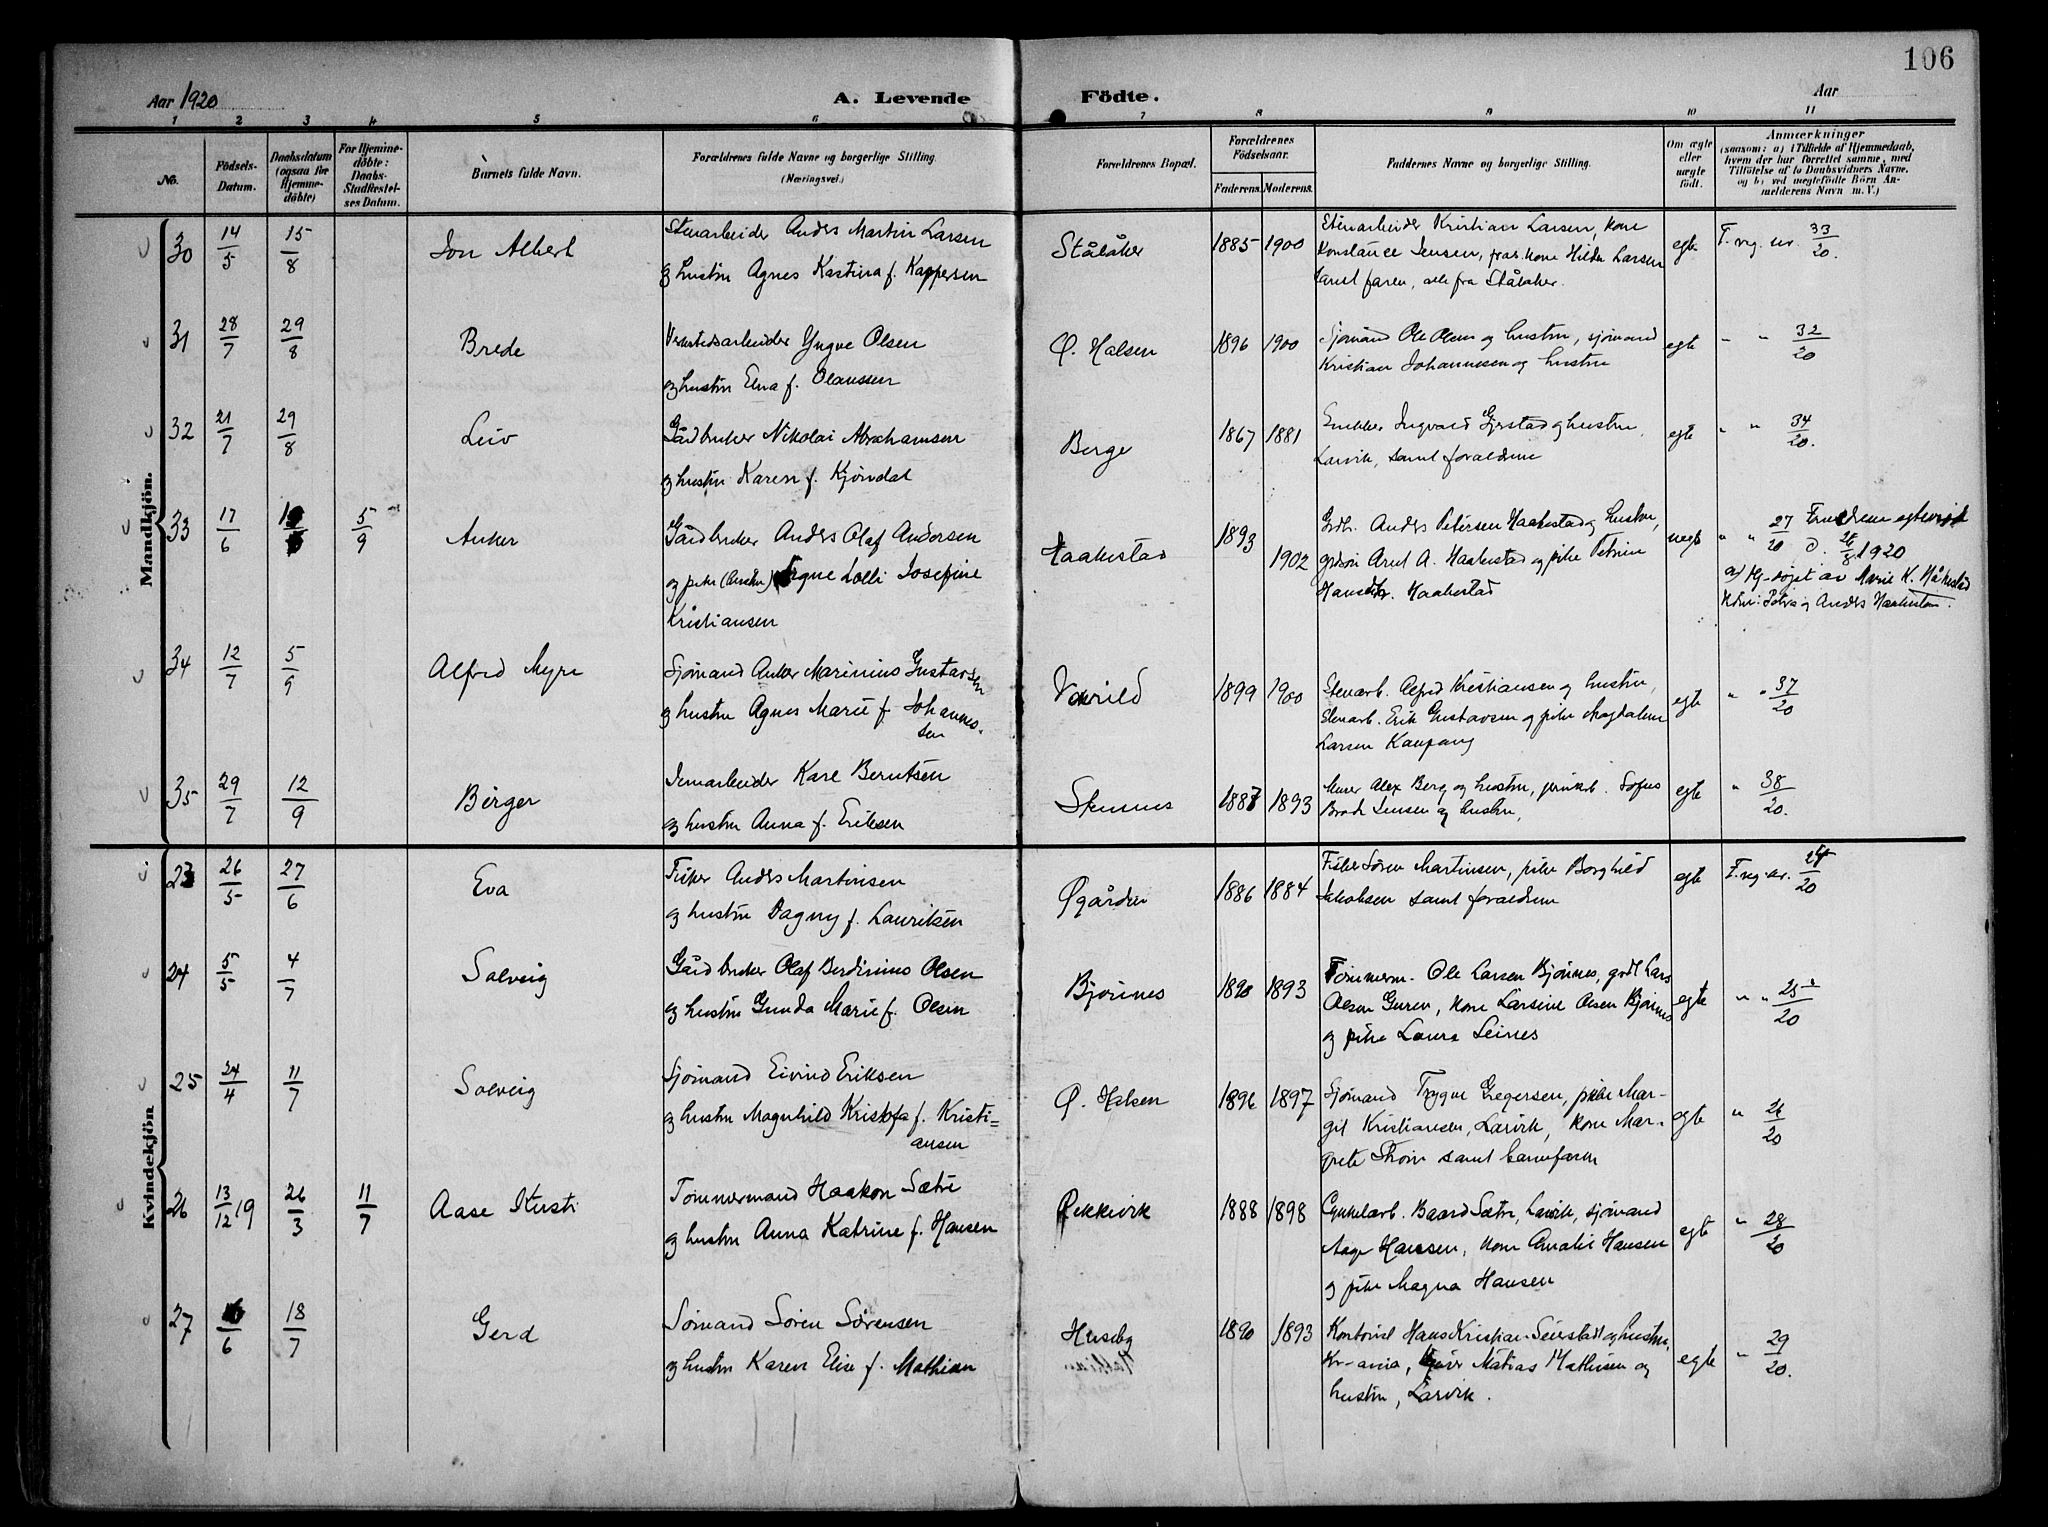 106
Aar 1920
A. Levende
Födte.
Aar
1 2 3 4 5 6 7 8 9 10 11
No.
Födsels-Datum.
Daabsdatum (ogsaa for Hjemmedöbte)
For Hjemmedöbte: Daabs-Stadfæstelses Datum.
Barnets fulde Navn.
Forældrenes fulde Navne og borgerlige Stilling. (Næringsvei.)
Forældrenes Bopæl.
Forældrenes Födselsaar.
Faderens. Moderens.
Faddernes Navne og borgerlige Stilling.
Om ægte eller uægte födt.
Anmærkninger
(saasom: a) i Tilfælde af Hjemmedaab, hvem der har forrettet samme, med Tilföielse af to Daabsvidners Navne, og b) ved uægtefödte Börn Anmelderens Navn m. V.)
Mandkjön.
30 14/5 15/8 Jon Albert
Stenarbeider Anders Martin Larsen
og hustru Agnes Kastina f. Kaspersen
Ståláker 1885 1900
Stenarbeider Kristian Larsen, kone
Konstance Jensen, kone Hilda Larsen
samt faren, alle fra Ståláker.
egte F. reg. nr. 33/20.
31 28/7 29/8 Brede
Verkstedsarbeider Yngve Olsen
og hustru Elna f. Olaussen
Ø. Halsen 1896 1900
Sjømand Ole Olsen og hustru, sjømand
Kristian Johannessen og hustru
egte " " 32/20
32 21/7 29/8 Leiv
Gårdbruker Nikolai Abrahamsen
og hustru Karen f. Kjøndal
Berge 1867 1881
Ingvald Gjerstad og hustru,
Larvik, samt forældrene
egte " " 34/20.
33 17/6 5/9 Anker
Gårdbruker Anders Olaf Andersen
og pike (hustru) Signe Lolli Josefine
Kristiansen
Haakestad 1893 1902
Grdbr. Anders Petersen Haakestad og hustru,
grdsøn Arnt A. Haakestad og pike Petrine
Hansdtr. Haakestad
uegte " " 27/20 1920
av Marie K. Håkestad
og Anders Haakestad.
34 12/7 5/9 Alfred Myre
Sjømand Anker Marinius Gustavsen
og hustru Agnes Marie f. Johannes-
sen
Varild 1899 1900
Stenarb. Alfred Kristiansen og hustru,
Stenarb. Erik Gustavsen og pike Magdalene
Larsen Kaupang
egte " " 37/20
35 29/7 12/9 Birger
Jernarbeider Karl Berntsen
og hustru Anna f. Eriksen
1887 1893
Murer Alex Berg og hustru, Sofus
Jensen og hustru,
egte " 38/20.
Kvindekjön
23 26/5 27/6 Eva
Fisker Anders Martinsen
og hustru Dagny f. Lauritsen
Øgården 1886 1884
Fisker Søren Martinsen, pike Borghild
Jakobsen samt forældrene
egte F. reg. nr. 24/20
24 5/5 4/7 Solveig
Gårdbruker Olaf Berdinius Olsen
og hustru Gunda Marie f. Olsen
Bjønnes 1890 1893
Tømmerm. Ole Larsen Bjønnes, grdbr Lars
Olsen Guren, kone Larsine Olsen Bjønnes
og pike Laura Leines
egte " " 25/20
25 24/4 11/7 Solveig
Sjømand Eivind Eriksen
og hustru Magnhild Kristofa f. Kristi=
ansen
Ø. Halsen 1896 1897
Sjømand Trygve Gregersen, pike Mar-
git Kristiansen, Larvik, kone Mar-
grete Thom samt barnefaren
egte " 26/20
26 13/12 19 26/3 11/7 Aase Kirsti
Tømmermand Haakon Sætre
og hustru Anna Katrine f. Hansen
Rekkevik 1888 1898
Cykkelarb. Baard Sætre, Larvik, sjømand
Aage Hanssen, kone Amalie Hansen
og pike Magna Hansen
egte " 28/20
27 /6 18/7 Gerd
Sømand Søren Sørensen
og hustru Karen Elise f. Mathisen
Huseby 1890 1893
Kontorist Hans Kristian Seierstad og hustru,
Kr-ania, Matias Mathisen og
hustru, Larvik.
egte " 29/20.